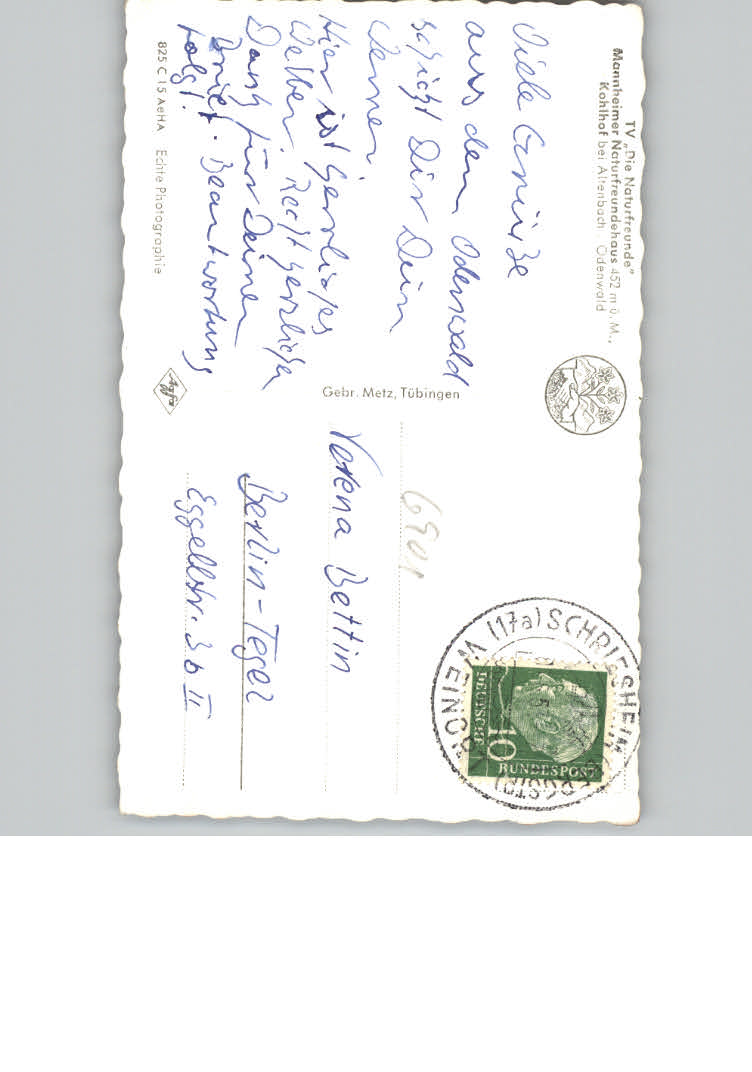 TV „Die Naturfreunde"
Mannheimer Naturfreundehaus 452 m ü. M.,
Kohlhof bei Altenbach . Odenwald
Viele Grüße
aus dem Odenwald
schickt Dir Dein
Werner.
Hier ist herrliches
Wetter. Recht herzlichen
Dank für Deinen
Brief. Beantwortung
folgt!
825 C 15 AeHA Echte Photographie
Agfa
Gebr. Metz, Tübingen
6901
Verena Bettin
Berlin-Tegel
Eggellstr. 3b II
(17a) SCHRIESHEIM
(BERGSTR)
WEINORT
DEUTSCHE
BUNDESPOST
10